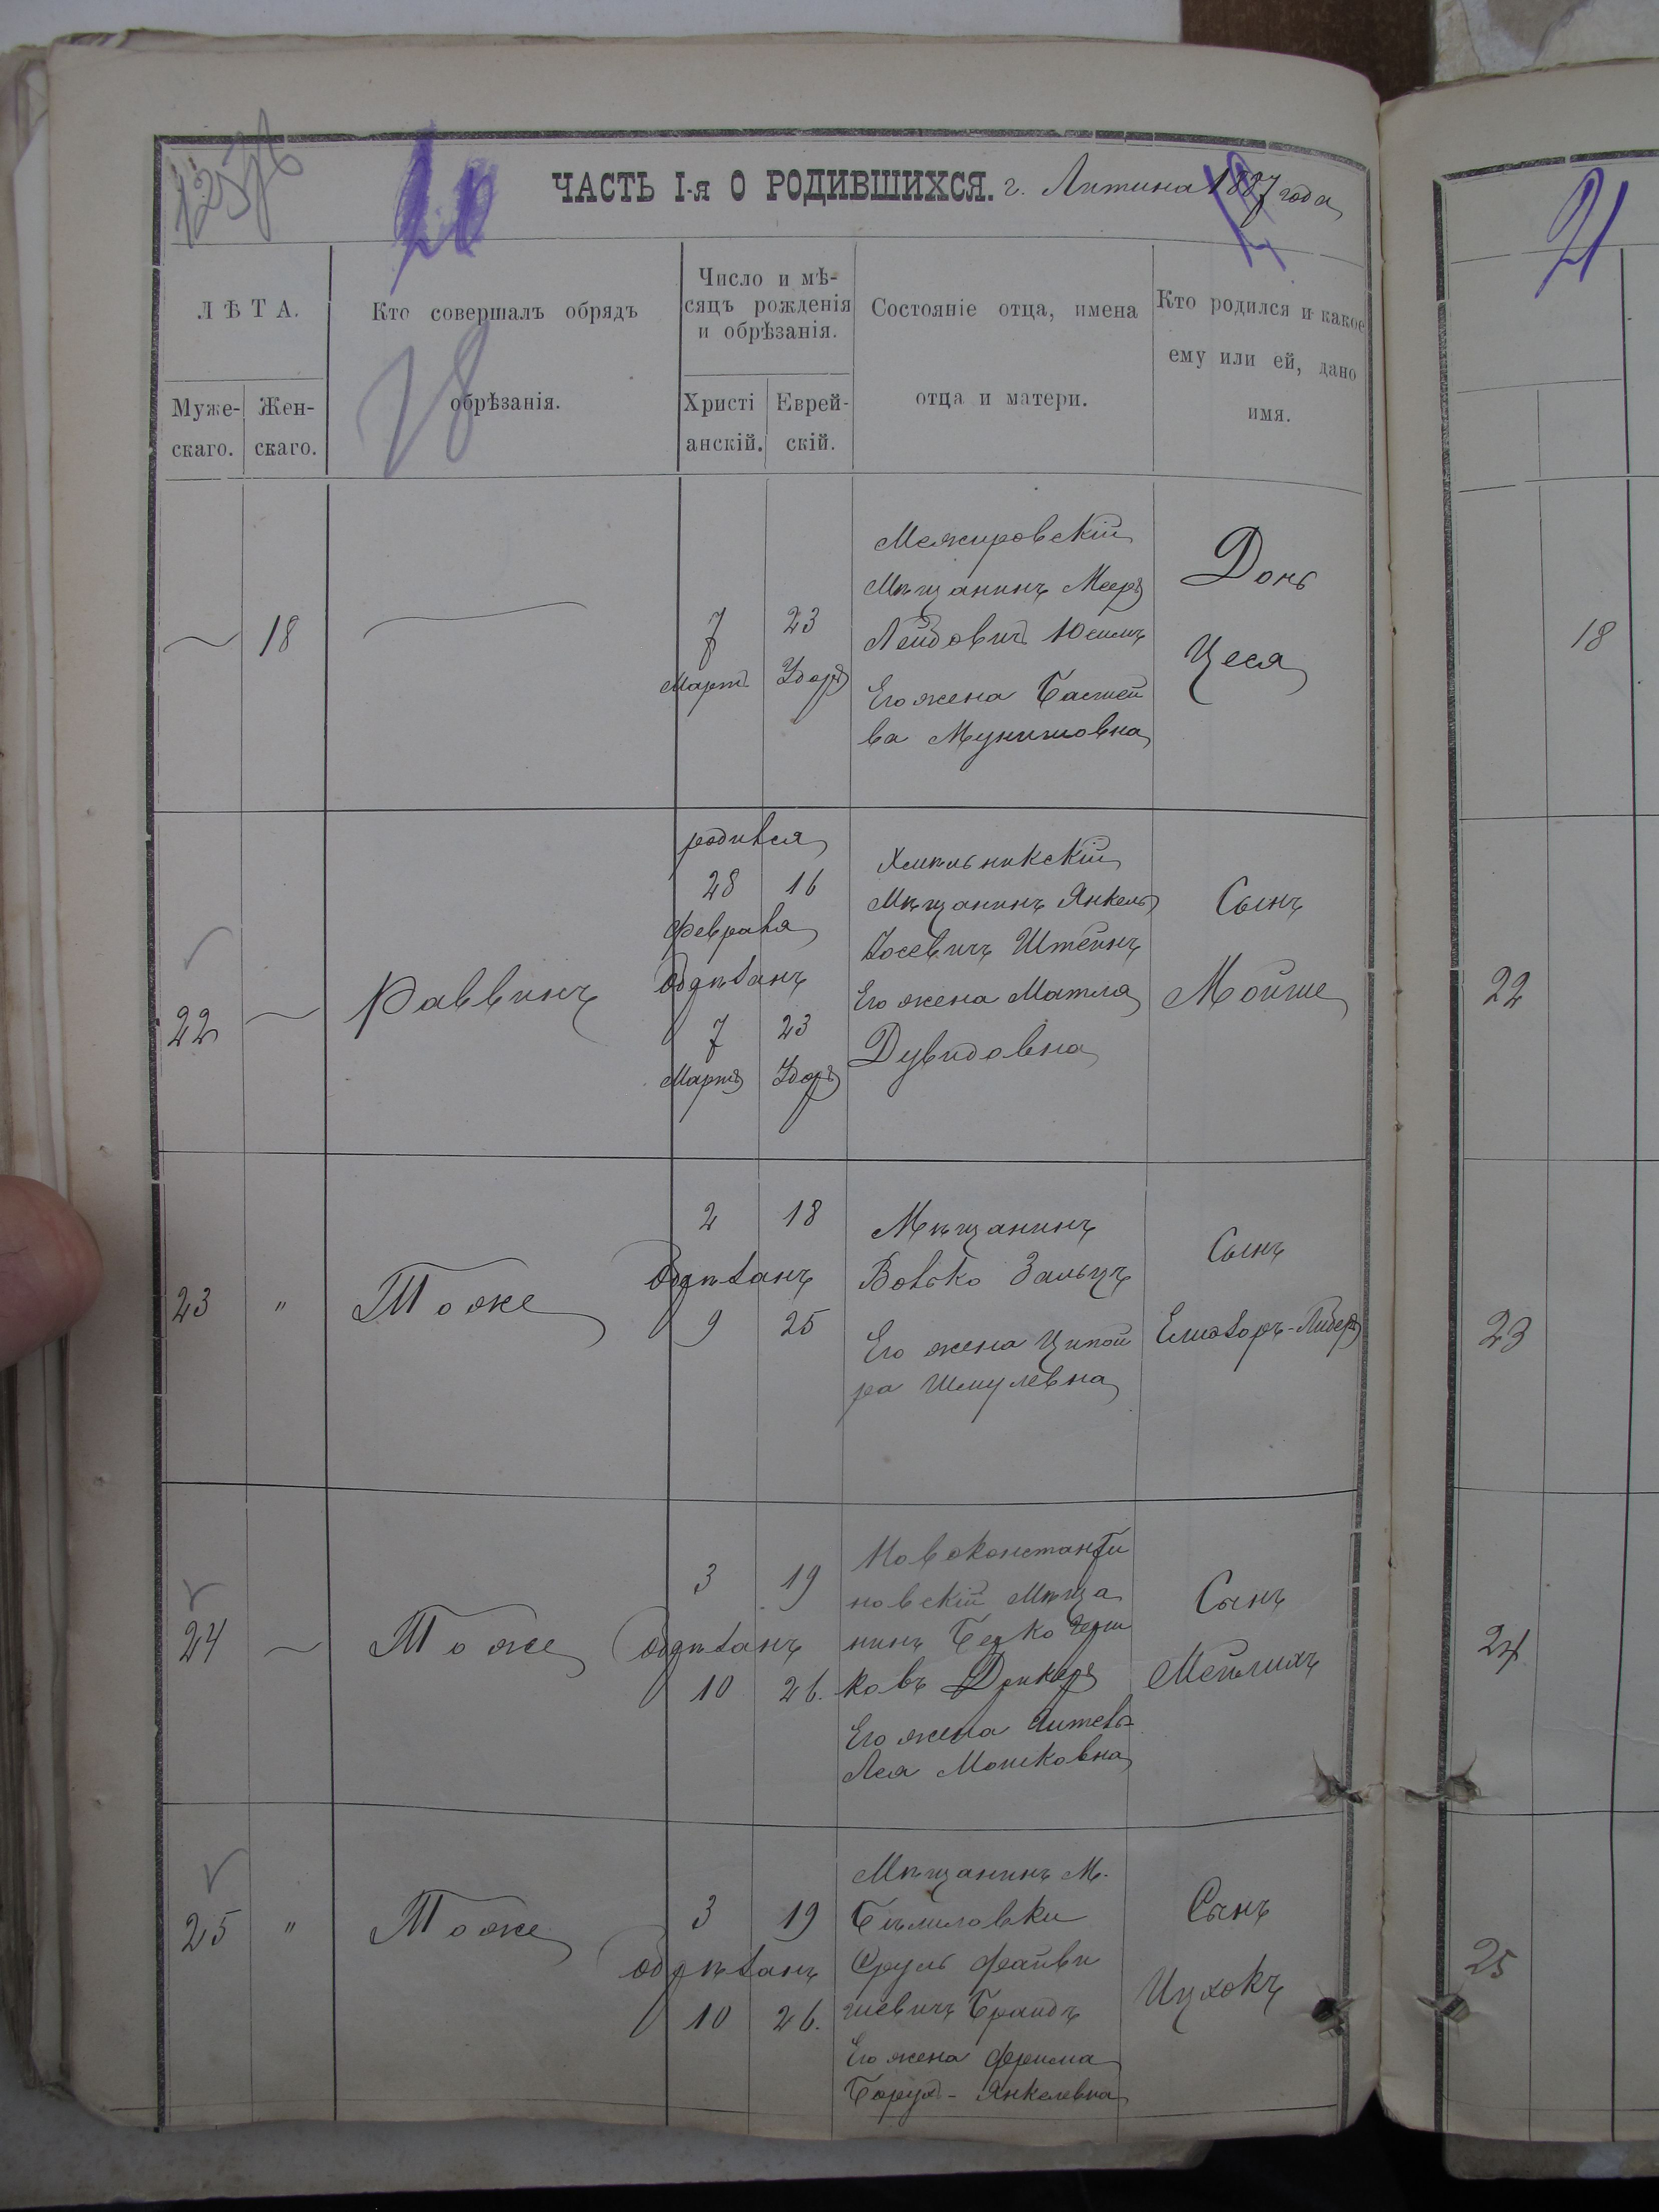 ЧАСТЬ I-я О РОДИВШИХСЯ. г. Литина 1887 года
21
ЛѢТА.
Муже-
скаго.
Жен-
скаго.
Кто совершалъ обрядъ
обрѣзанія.
Число и мѣ-
сяцъ рожденія
и обрѣзанія.
Христі
анскій.
Еврей-
скій.
Состояніе отца, имена
отца и матери.
Кто родился и какое
ему или ей, дано
имя.
18
7
Мартъ
23
Адоръ
Межировскій
Мѣщанинъ Мееръ
Лейбовичъ
Его жена Басшей
ва Мунишовна
Дочь
Цеся
18
22
Раввинъ
родился
28 16
Февраля
Обрѣзанъ
7 23
Мартъ Адоръ
Хмѣльникскій
Мѣщанинъ Янкель
Іосевичъ Штейнъ
Его жена Матля
Дувидовна
Сынъ
Мойше
22
23 "
Тоже
2 18
Обрѣзанъ
9 25
Мѣщанинъ
Волько Зальцъ
Его жена Ципой
ра Шмулевна
Сынъ
Елиазоръ-Либеръ
23
24
Тоже
3 19
Обрѣзанъ
10 26.
Новоконстанти
новскій Мѣща
нинъ
Его жена
Лея Мошковна
Сынъ
Мейлихъ
24
25 "
Тоже
3 19
Обрѣзанъ
10 26.
Мѣщанинъ М.
Бѣлиловки
Сруль Файви
шевичъ Брандъ
Его жена Фрима
Боруд- Янкелевна
Сынъ
Ицхокъ
25